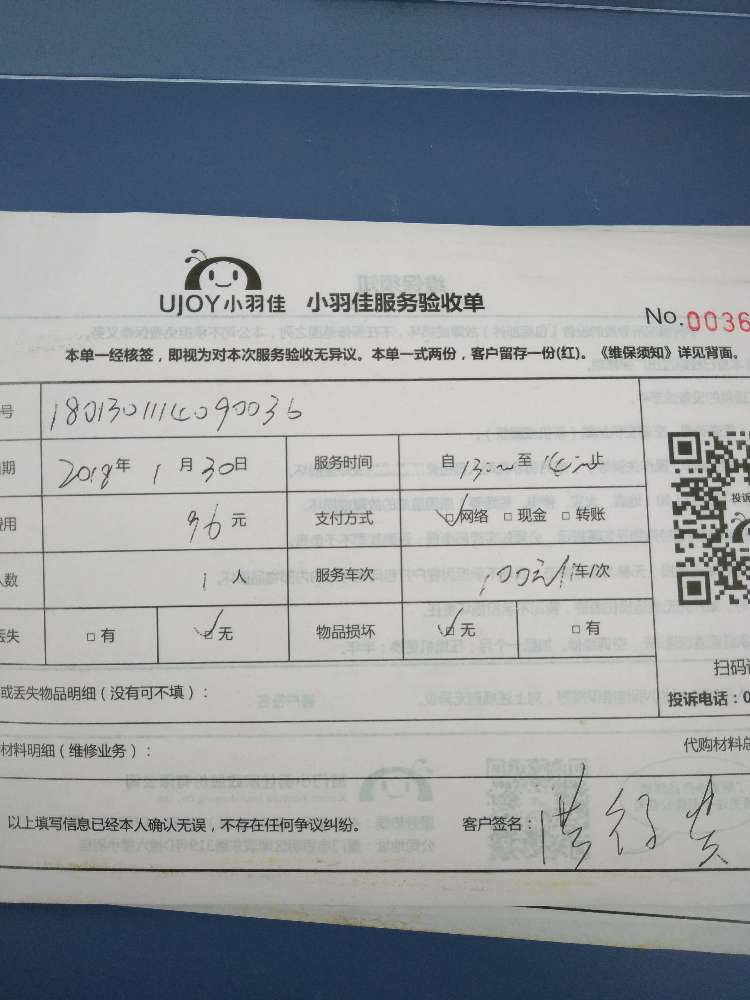 UJOY小羽佳 小羽佳服务验收单
No.0036
本单一经核签，即视为对本次服务验收无异议。本单一式两份，客户留存一份(红)。《维保须知》详见背面。
号
期 2018年1月30日 服务时间 自13:00至16:00止
费用 96元 支付方式 ☑网络 □现金 □转账
人数 1人 服务车次 车/次
丢失 □有 ☑无 物品损坏 ☑无 □有
投诉
扫码
或丢失物品明细（没有可不填）：
投诉电话：0
材料明细（维修业务）：
代购材料总
以上填写信息已经本人确认无误，不存在任何争议纠纷。 客户签名：